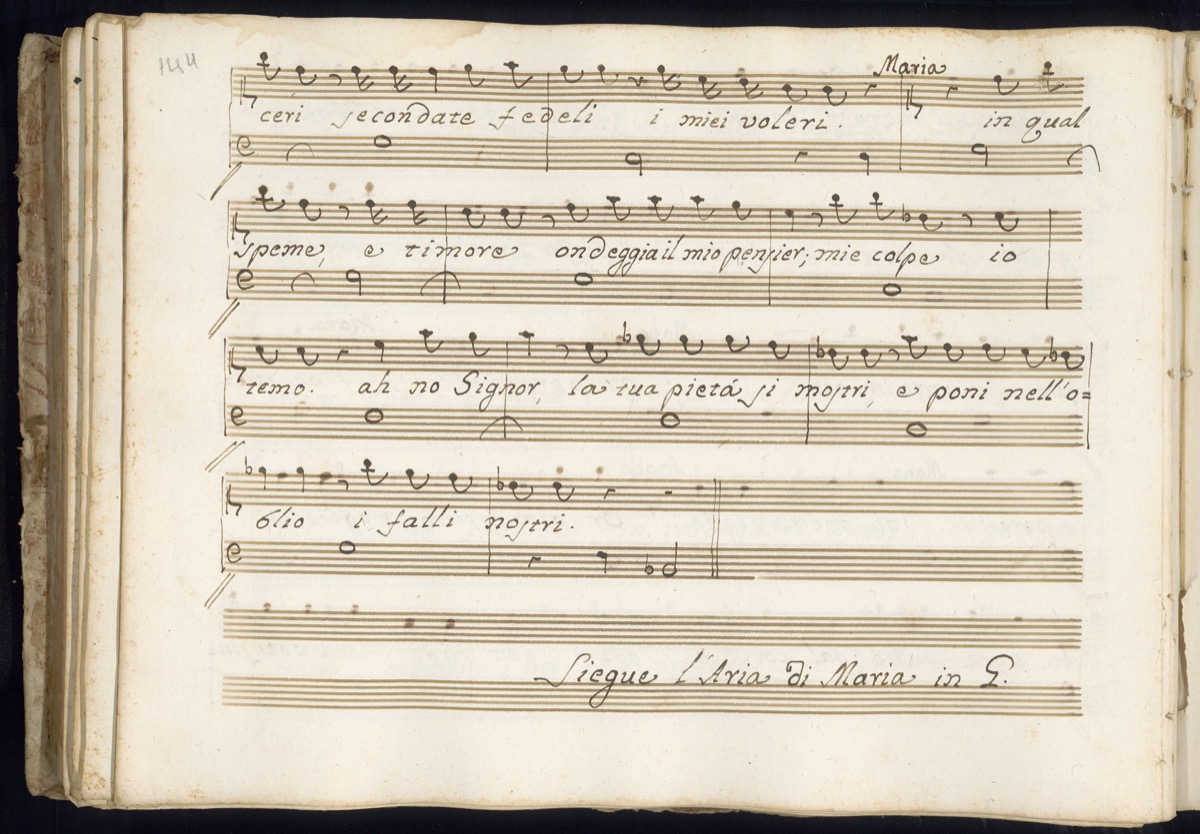 144
Maria
ceri secondate fedeli i miei voleri. in qual
speme, e timore ondeggia il mio pensier; mie colpe io
temo. ah no Signor, la tua pietá si mostri, e poni nell'o=
blio i falli nostri.
Siegue l'Aria di Maria in G.